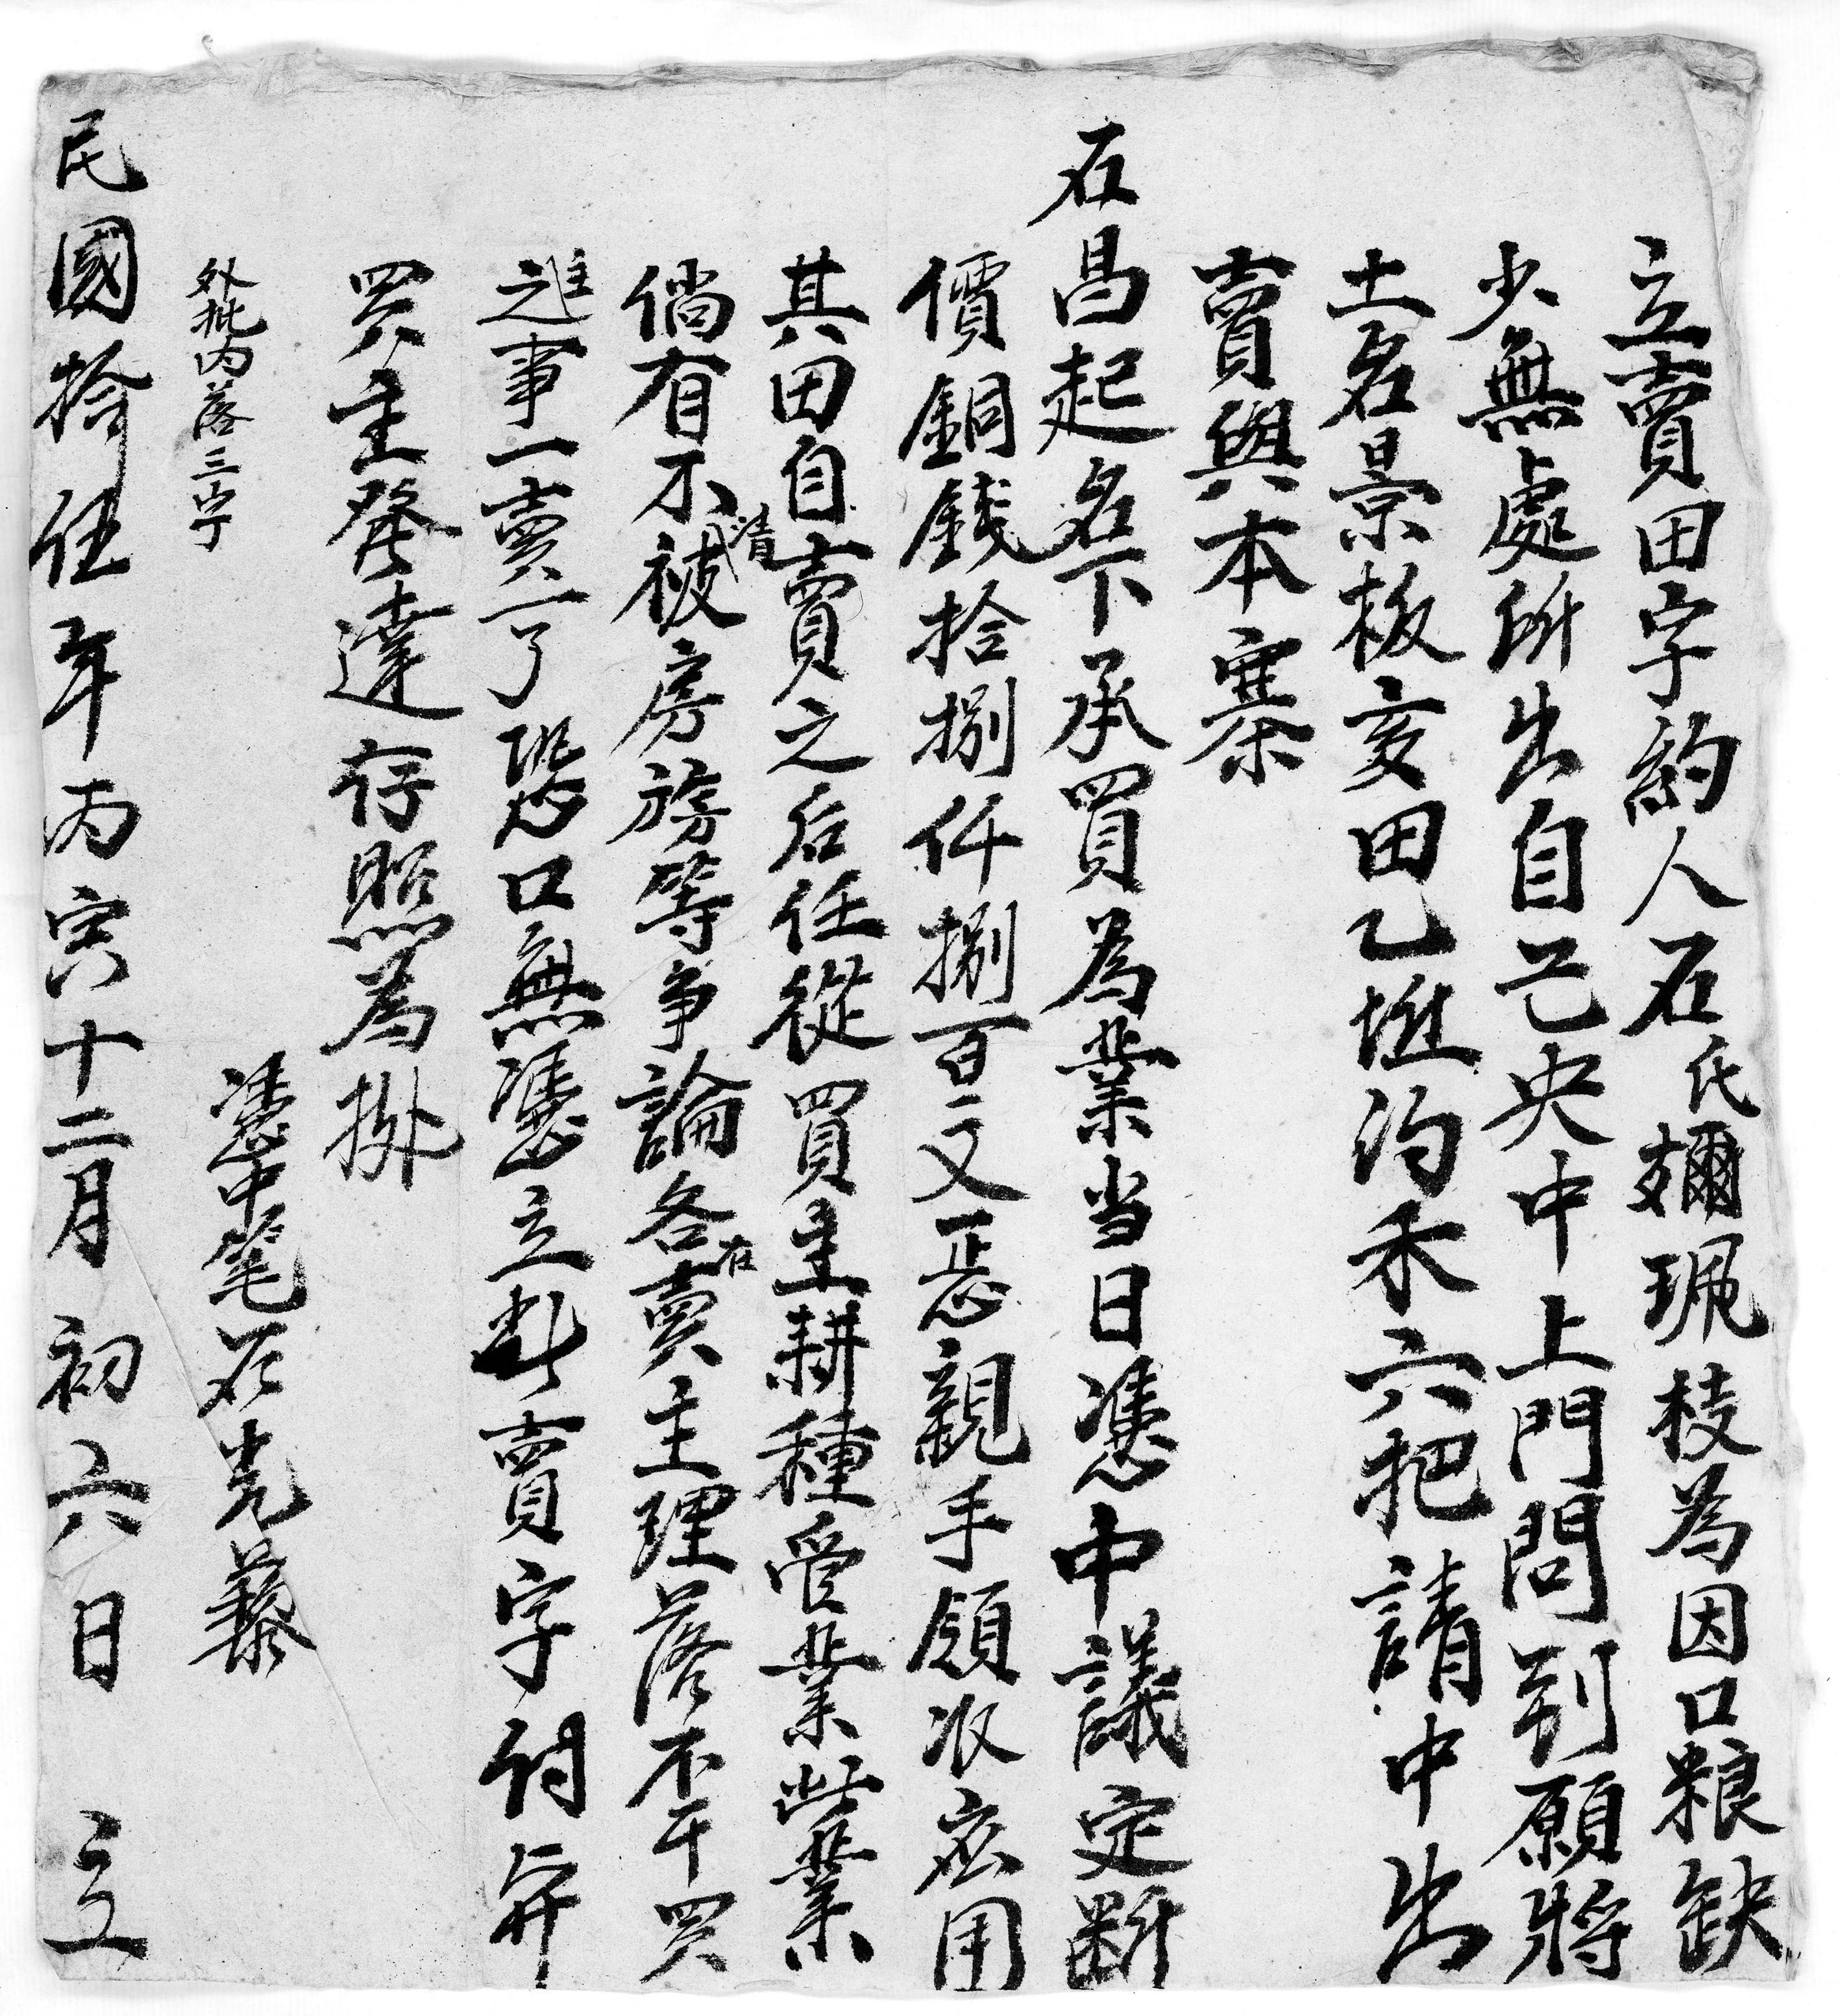 立賣田字約人石氏嬭珮枝為因口粮缺
少無處所出自己央中上門問到願將
土名景板亥田乙坵汮禾六把請中出
賣與本寨
石昌起名下承買為業当日憑中議定断
價銅錢拾捌仟捌百文正恁親手領收应用
其田自賣之后任從買主耕種受業此業
倘有不清被房族等争論各在賣主理落不干買
主之事一賣一了恐口無憑立此賣字付与
買主發達存照為掛
外批内落三字
憑中筆石光藜
民國拾伍年丙寅十二月初六日 立